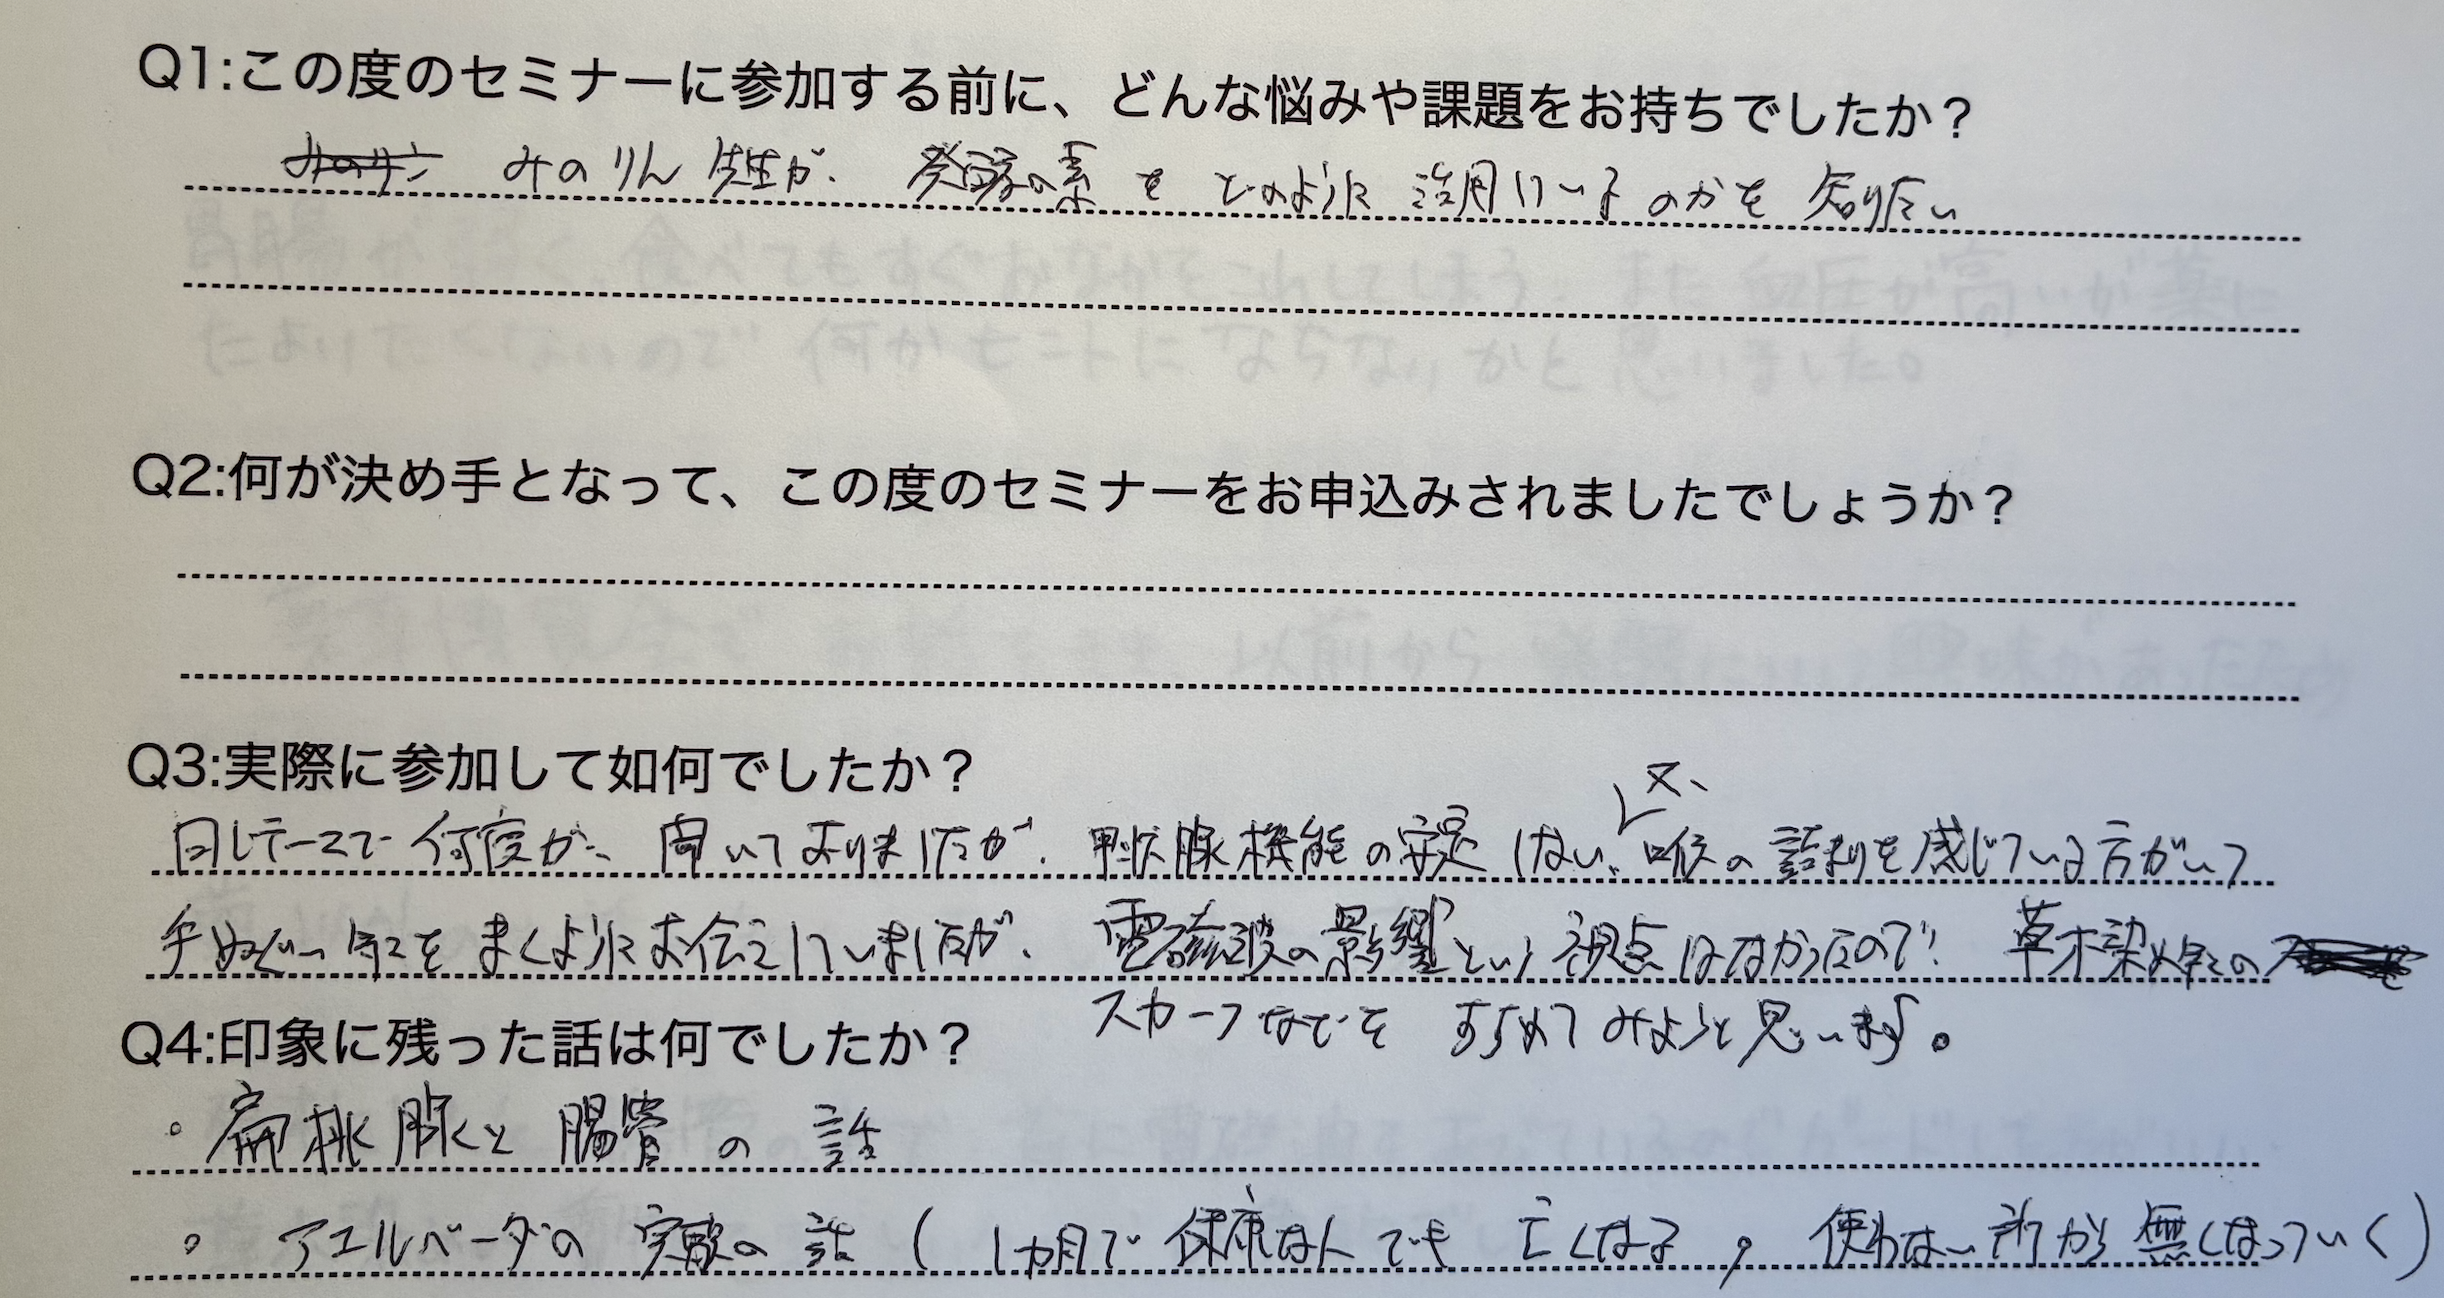 Q1:この度のセミナーに参加する前に、どんな悩みや課題をお持ちでしたか？
みのりん先生が、発酵の素をどのように活用しているのかを知りたい
Q2:何が決め手となって、この度のセミナーをお申込みされましたでしょうか？
Q3:実際に参加して如何でしたか？
又、
同じテーマで何度か、聞いておりましたが、甲状腺機能の安定しない、喉の詰まりを感じている方がいて
手ぬぐい等をまくようにお伝えしていましたが、電磁波の影響という視点はなかったので！草木染め等の
スカーフなどをすすめてみようと思います。
Q4:印象に残った話は何でしたか？
。扁桃腺と腸骨の話
。アユルベーダの実験の話（1カ月で健康な人でも亡くなる，使わない所から無くなっていく）